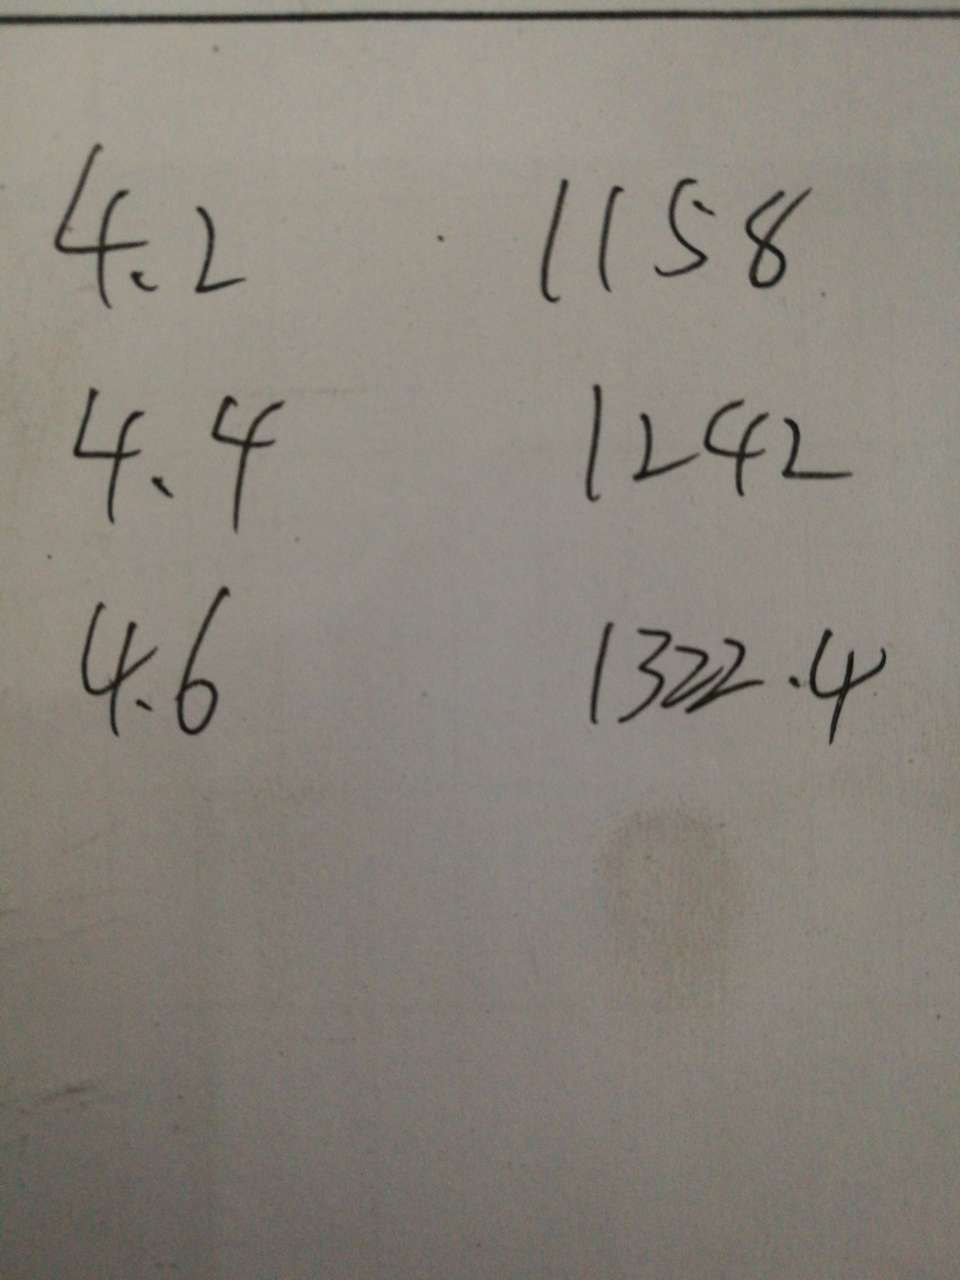 4.2 1158
4.4 1242
4.6 1322.4